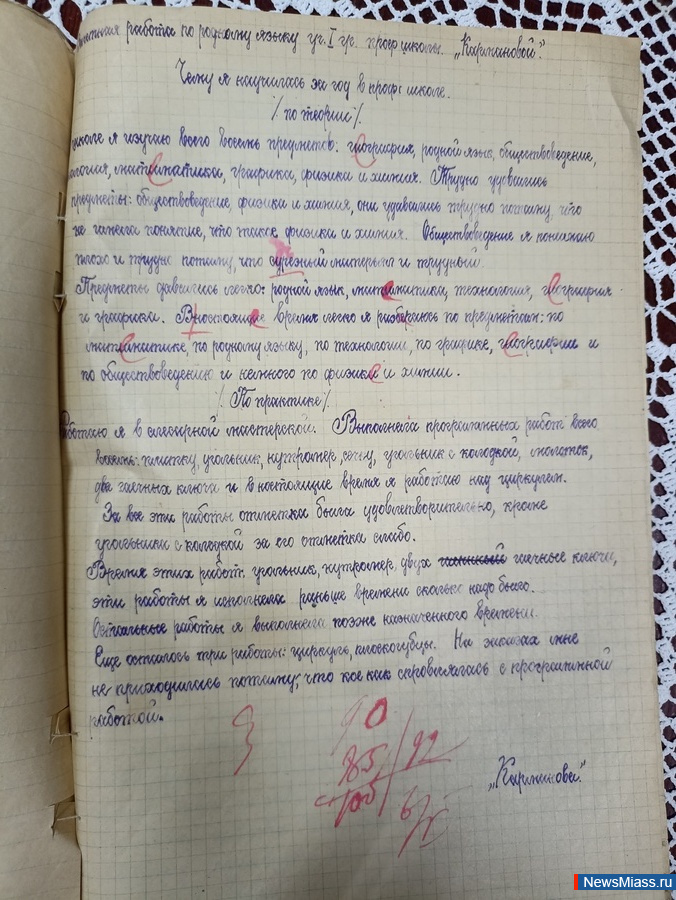 работа по родному языку уч. I гр. проф школы. „Кармановой".
Чему я научилась за год в проф: школе.
/ по теории /.
школе я изучаю всего восемь предметов: георафия, родной язык, обществоведение,
ология, матиматика, графика, физика и химия. Трудно удовались
предметы: обществоведение, физика и химия, они удавались трудно потому, что
не имела понятие, что такое физика и химия. Обществоведение я понимаю
плохо и трудно потому, что материял и трудный.
Предметы удавались легко: родной язык, математика, технология, география
и графика. Внастоящие время легко я разбераюсь по предметам: по
матиматике, по родному языку, по технологии, по графике, географии и
по обществоведению и немного по физики и химии.
/ По практике /.
Работаю я в слесарной мастерской. Выполнела программных работ всего
восемь: плитку, угольник, кутромер, угольник с колодкой, молоток,
два гаечных ключа и в настоящие время я работаю над циркулем.
За все эти работы отметка была удовлетворительно, кроме
угольника с колодкой за его отметка слабо.
Время этих работ угольник, кутромер, двух гаечные ключи,
эти работы я исполнела раньше времени сколько надо было.
Остальные работы я выполнела позже назначенного времени.
Еще осталось три работы: циркуль, плоскогубцы. На заказах мне
не приходилось потому, что кое как справлялась с программной
работой.
90
85 92
„Карманова."
NewsMiass.ru